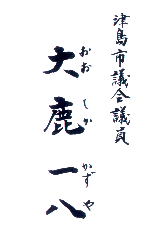 津島市議会議員
大鹿一八
おおしかかずや